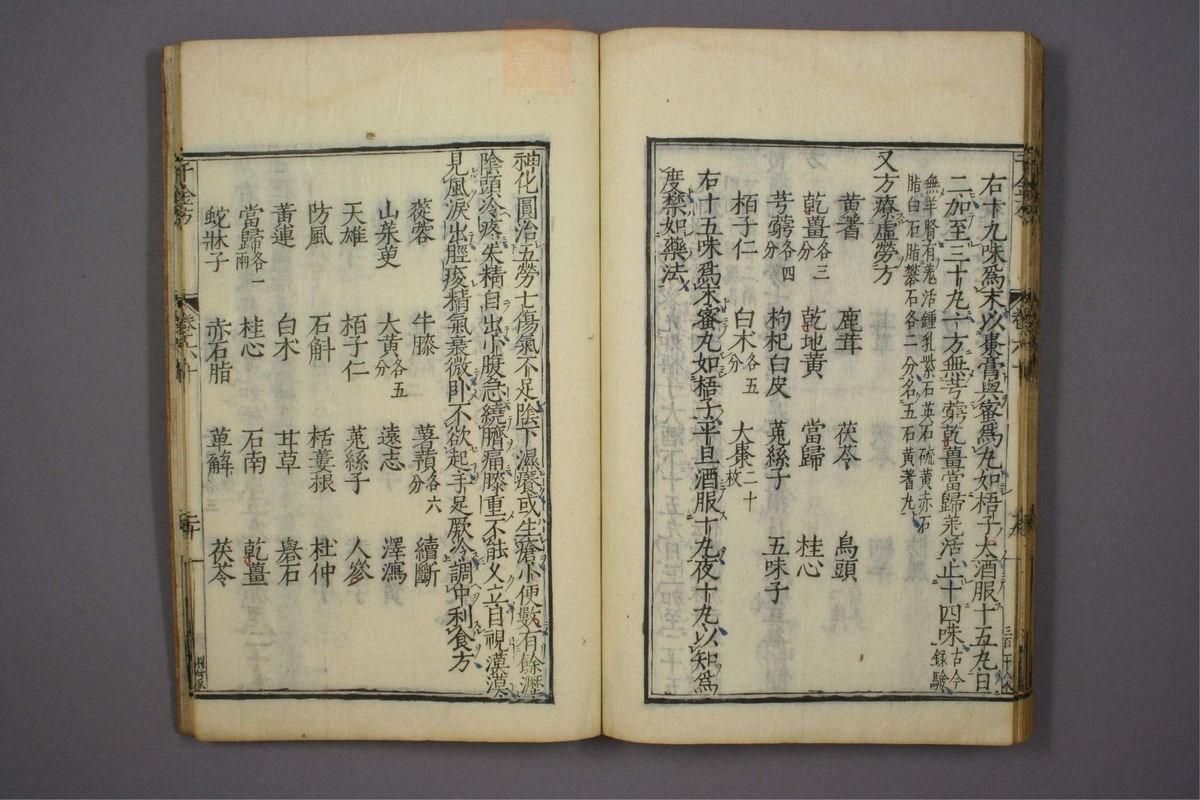 右十九味爲末以棗膏與蜜爲丸如梧子大酒服十五丸日
二加至三十丸一方無芎藭乾薑當歸羌活止十四味古今
錄驗
無羊腎有羌活鍾乳紫石英石硫黃赤石
脂白石脂礬石各二分名五石黃耆丸
又方療虛勞方
黃耆 鹿茸 茯苓 烏頭
乾薑各三 乾地黃 當歸 桂心
芎藭各四分 枸杞白皮 菟絲子 五味子
栢子仁 白朮各五分 大棗二十枚
右十五味爲末蜜丸如梧子平旦酒服十丸夜十丸以知爲
度禁如藥法
千金方 卷六十 二十
神化圓治五勞七傷氣不足陰下濕癢或生瘡小便數有餘瀝
陰頭冷疼失精自出小腹急繞臍痛膝重不能久立目視漠漠
見風淚出脛痠精氣衰微卧不欲起手足厥冷調中利食方
蓯蓉 牛膝 薯蕷各六分 續斷
山茱萸 大黃各五分 遠志 澤瀉
天雄 栢子仁 菟絲子 人參
防風 石斛 栝蔞根 杜仲
黃連 白朮 甘草 礜石
當歸各一兩 桂心 石南 乾薑
蛇牀子 赤石脂 萆薢 茯苓